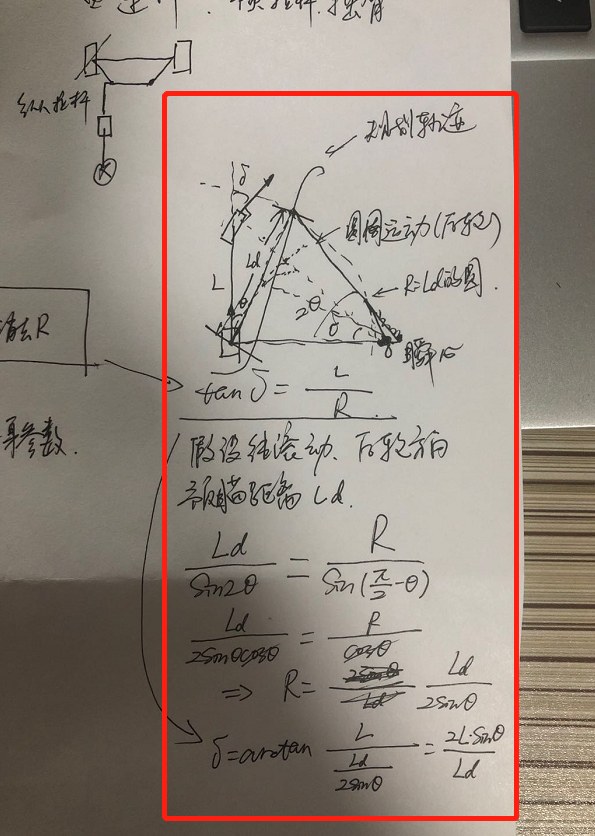 纵拉杆
规划轨迹
δ
圆周运动(后轮)
Ld
L
R=Ld的圆.
θ
2θ
θ
瞬心
R
tan δ = L / R
算参数.
假设纯滚动、后轮方向
预瞄距离 Ld.
Ld / Sin2θ = R / Sin(π/2 -θ)
Ld / 2Sinθcosθ = R / cosθ
=> R= Ld / 2sinθ
δ=arctan L / (Ld / 2sinθ) = 2L·Sinθ / Ld